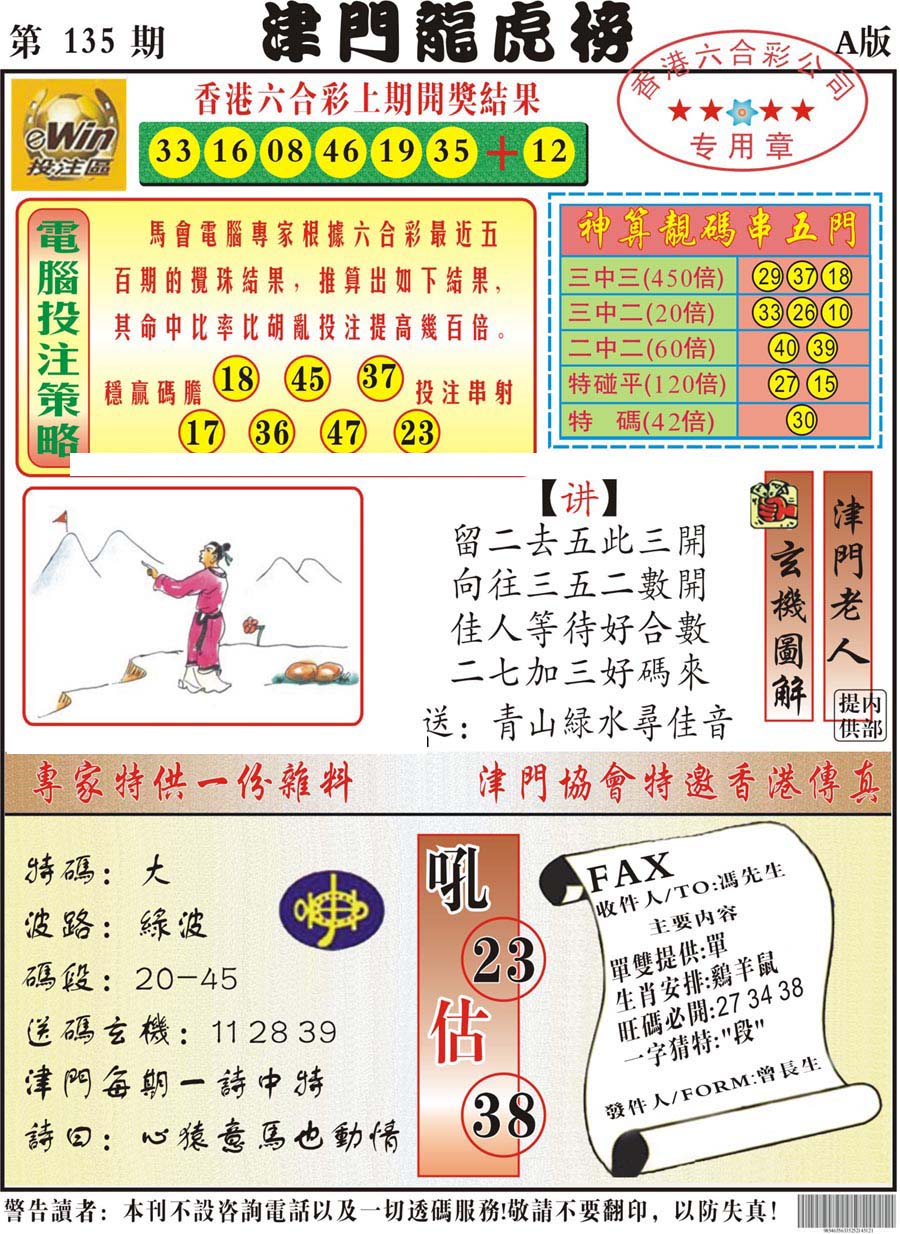 第 135 期
津門龍虎榜
A版
香港六合彩公司
专用章
eWin
投注區
香港六合彩上期開獎結果
33 16 08 46 19 35 + 12
電腦投注策略
馬會電腦專家根據六合彩最近五
百期的攪珠結果，推算出如下結果，
其命中比率比胡亂投注提高幾百倍。
穩贏碼膽 18 45 37 投注串射
17 36 47 23
神算靚碼串五門
三中三(450倍) 29 37 18
三中二(20倍) 33 26 10
二中二(60倍) 40 39
特碰平(120倍) 27 15
特 碼(42倍) 30
【讲】
留二去五此三開
向往三五二數開
佳人等待好合數
二七加三好碼來
送：青山綠水尋佳音
玄機圖解
津門老人
内部提供
專家特供一份雜料
津門協會特邀香港傳真
特碼：大
波路：綠波
碼段：20-45
送碼玄機：11 28 39
津門每期一詩中特
詩曰：心猿意馬也動情
吼
23
估
38
FAX
收件人/TO:馮先生
主要内容
單雙提供:單
生肖安排:鷄羊鼠
旺碼必開:27 34 38
一字猜特:"段"
發件人/FORM:曾長生
警告讀者：本刊不設咨詢電話以及一切透碼服務!敬請不要翻印，以防失真!